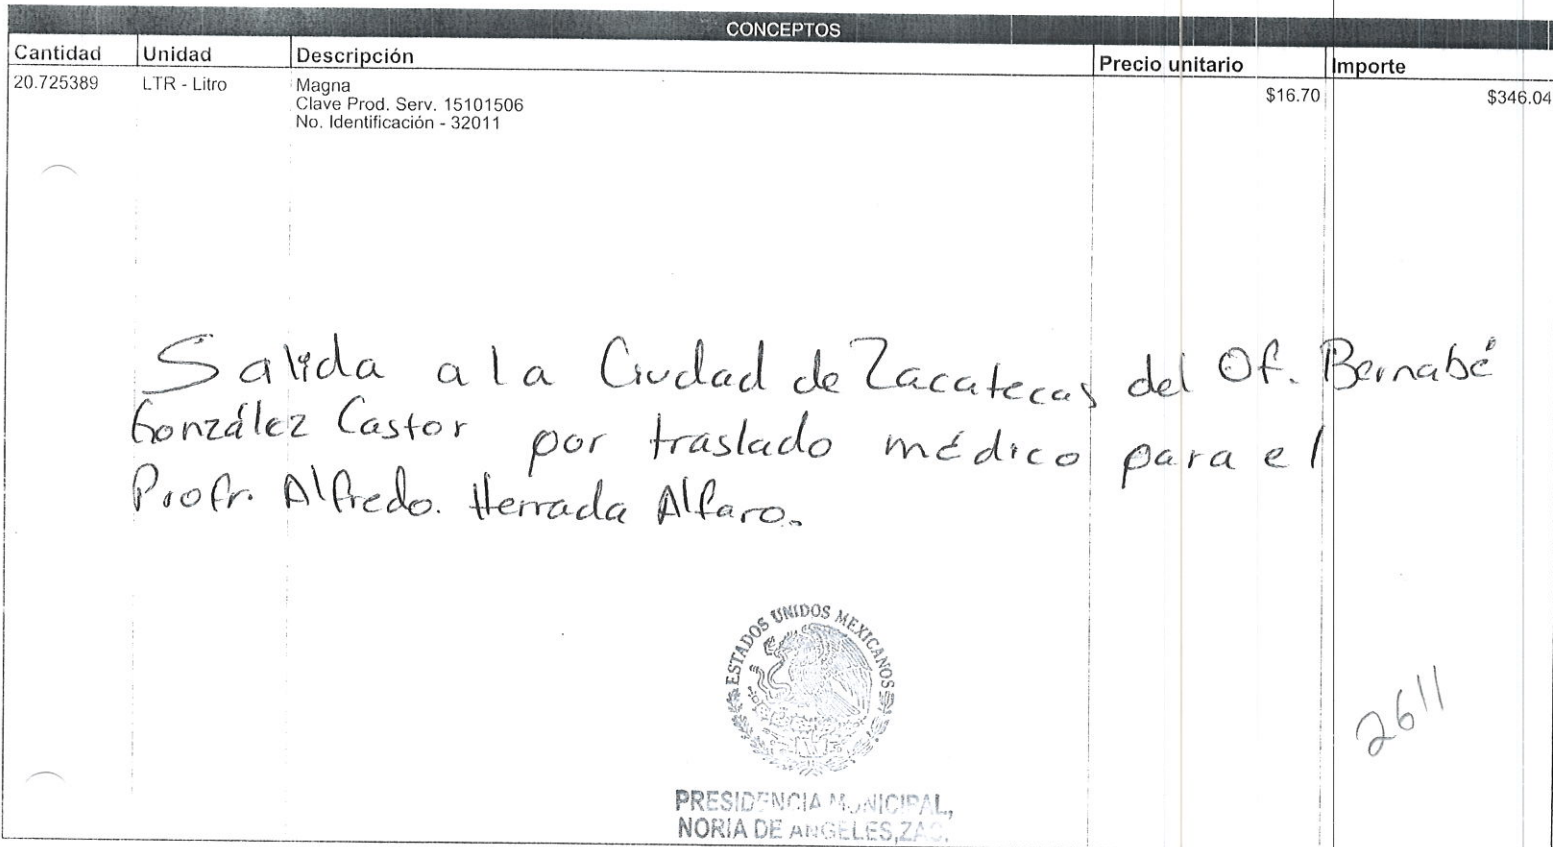 CONCEPTOS
Cantidad Unidad Descripción Precio unitario Importe
20.725389 LTR - Litro Magna $16.70 $346.04
Clave Prod. Serv. 15101506
No. Identificación - 32011
Salida a la Ciudad de Zacatecas del Of. Bernabé
González Castor por traslado médico para el
Profr. Alfredo. Herrada Alfaro.
ESTADOS UNIDOS MEXICANOS
2611
PRESIDENCIA MUNICIPAL,
NORIA DE ANGELES,ZAC.